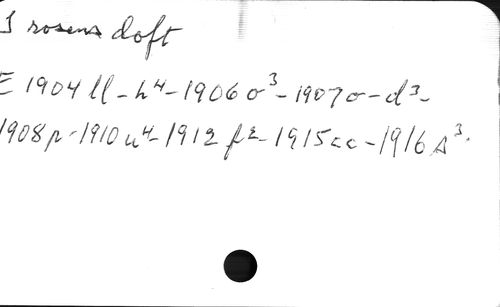 I rosens doft
E 1904 ll - h⁴ - 1906 o³ - 1907 o - d³ -
1908 p - 1910 u⁴ - 1912 f² - 1915 cc - 1916 s³.